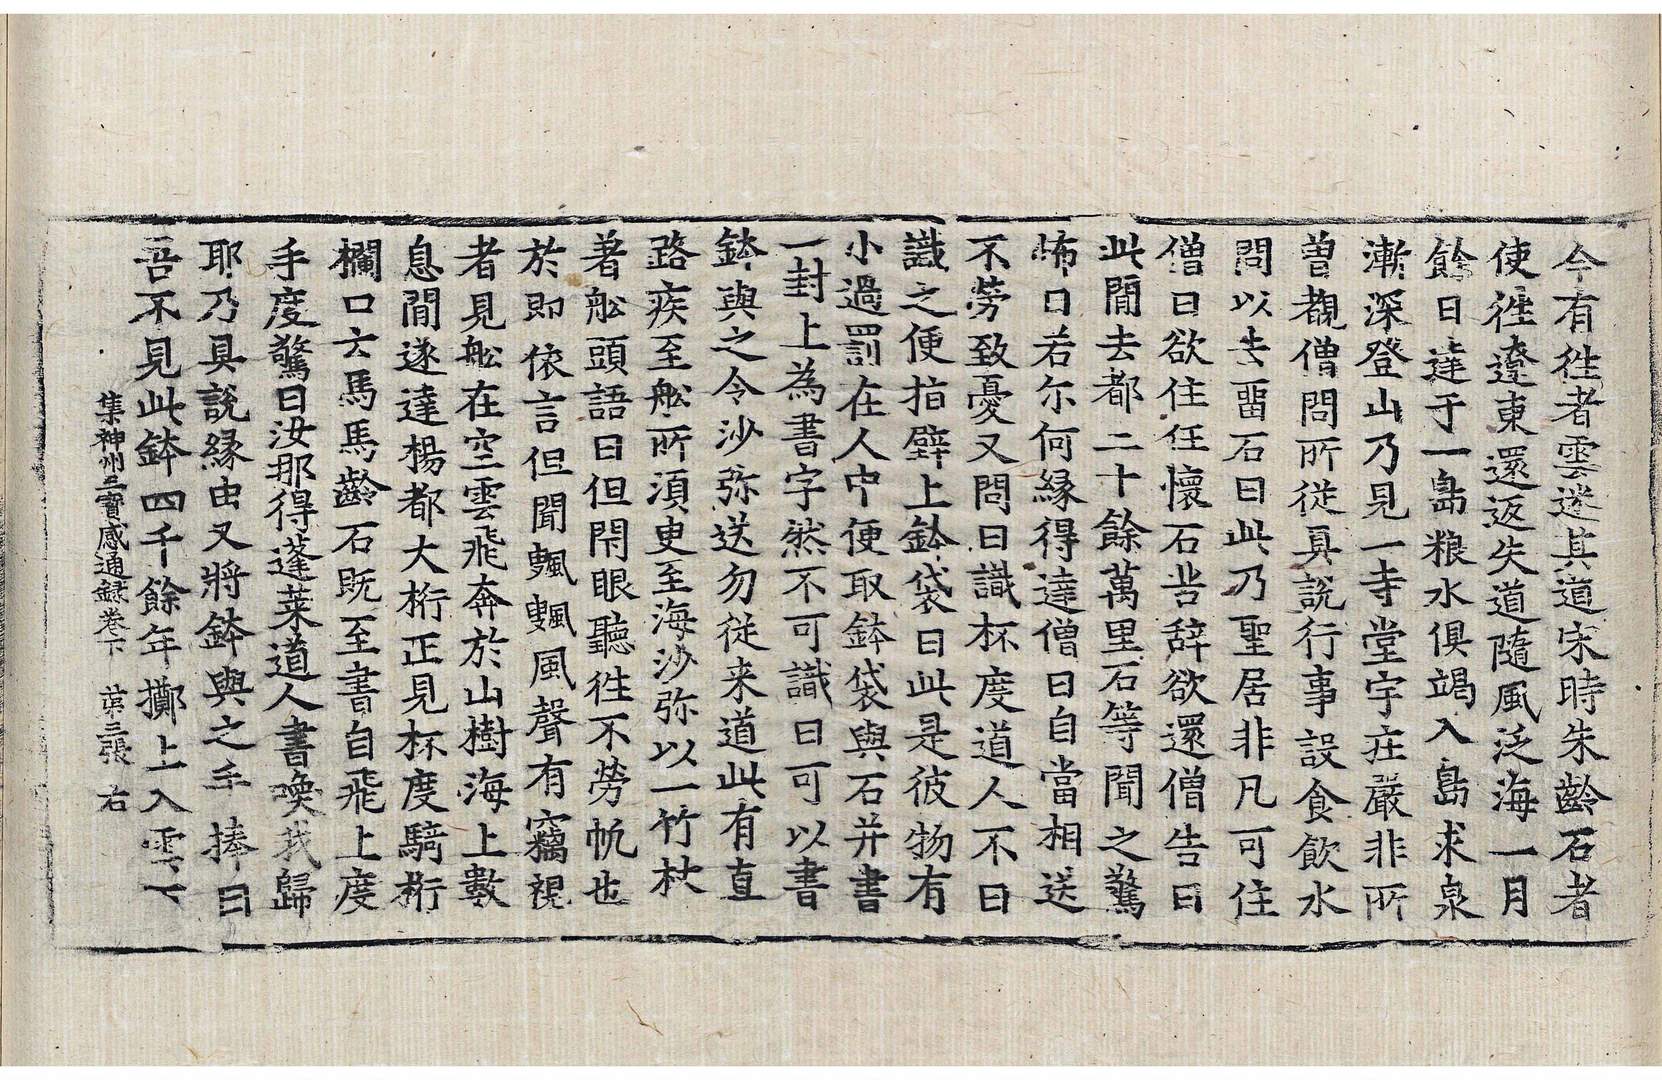 今有徃者雲迷其道宋時朱齡石者
使徃遼東還返失道隨風泛海一月
餘日達于一島粮水俱竭入島求泉
漸深登山乃見一寺堂宇庄嚴非所
曽覩僧問所從具說行事設食飲水
問以去留石曰此乃聖居非凡可住
僧曰欲住任懷石等辞欲還僧告曰
此間去都二十餘萬里石等聞之驚
怖曰若尓何緣得達僧曰自當相送
不勞致憂又問曰識杯度道人不曰
識之便指壁上鉢袋曰此是彼物有
小過罰在人中便取鉢袋與石并書
一封上為書字然不可識曰可以書
鉢與之令沙弥送勿從来道此有直
路疾至舩所湏㬰至海沙弥以一竹杖
著舩頭語曰但閇眼聽徃不勞帆也
於即依言但聞颽颽風聲有竊視
者見舩在空雲飛奔於山樹海上數
息間遂達楊都大桁正見杯度騎桁
欄口云馬馬齡石既至書自飛上度
手度驚曰汝那得蓬莱道人書喚我歸
耶乃具說緣由又將鉢與之手捧曰
吾不見此鉢四千餘年擲上入雲下
集神州三寶感通録卷下　苐三張　右